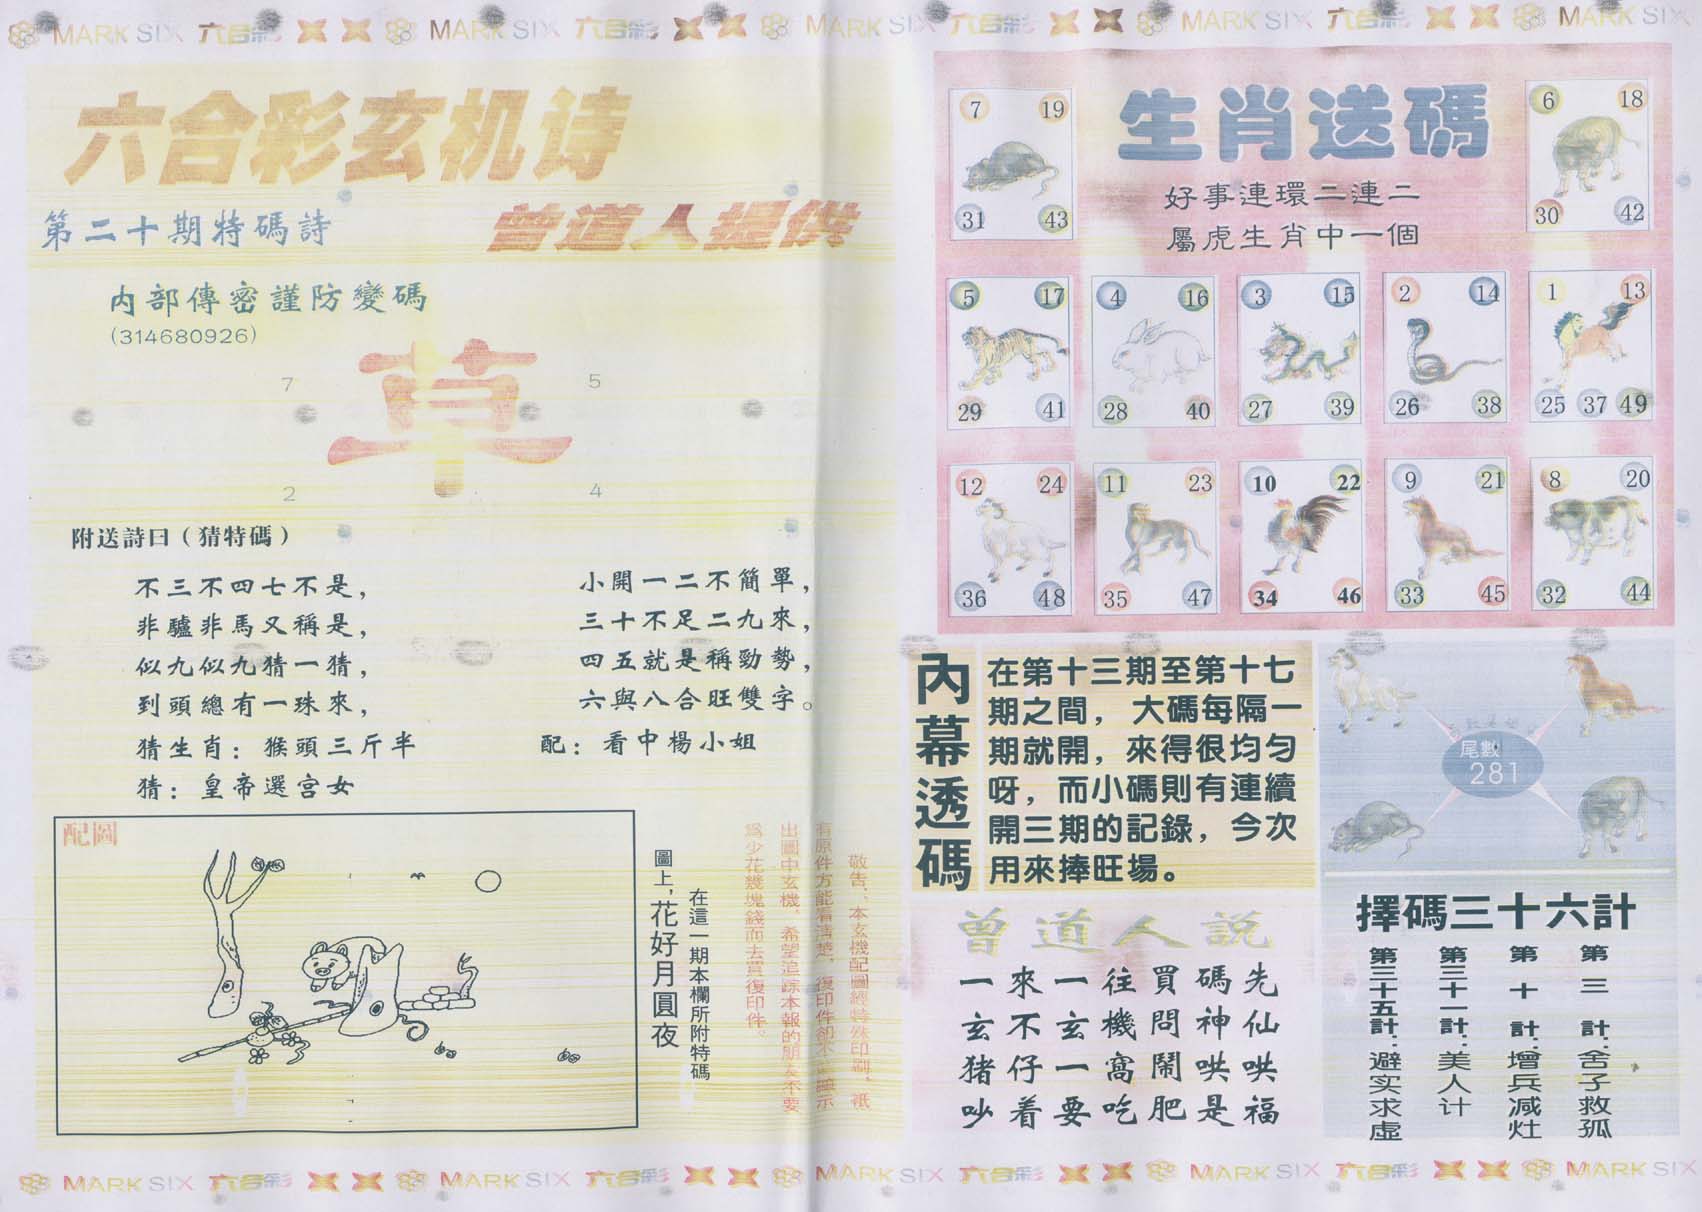 MARK SIX 六合彩 MARK SIX 六合彩 MARK SIX 六合彩 MARK SIX 六合彩 MARK SIX
六合彩玄机诗
第二十期特碼詩
曾道人提供
内部傳密謹防變碼
(314680926)
草
7 5
2 4
附送詩曰（猜特碼）
不三不四七不是，
非驢非馬又稱是，
似九似九猜一猜，
到頭總有一珠來，
小開一二不簡單，
三十不足二九來，
四五就是稱勁勢，
六與八合旺雙字。
猜生肖：猴頭三斤半
配：看中楊小姐
猜：皇帝選宫女
配圖
在這一期本欄所附特碼
圖上，花好月圓夜
敬告、本玄機配圖經特殊印刷、祇
有原件方能看清楚，復印件卻不顯示
出圖中玄機、希望追踪本報的朋友不要
爲少花幾塊錢而去買復印件。
生肖送碼
好事連環二連二
屬虎生肖中一個
7 19
31 43
6 18
30 42
5 17
29 41
4 16
28 40
3 15
27 39
2 14
26 38
1 13
25 37 49
12 24
36 48
11 23
35 47
10 22
34 46
9 21
33 45
8 20
32 44
內幕透碼
在第十三期至第十七
期之間，大碼每隔一
期就開，來得很均勻
呀，而小碼則有連續
開三期的記錄，今次
用來捧旺場。
尾數
281
曾道人説
一來一往買碼先
玄不玄機問神仙
猪仔一窩鬧哄哄
吵着要吃肥是福
擇碼三十六計
第三計：舍子救孤
第十計：增兵减灶
第三十一計：美人计
第三十五計：避实求虚
MARK SIX 六合彩 MARK SIX 六合彩 MARK SIX 六合彩 MARK SIX 六合彩